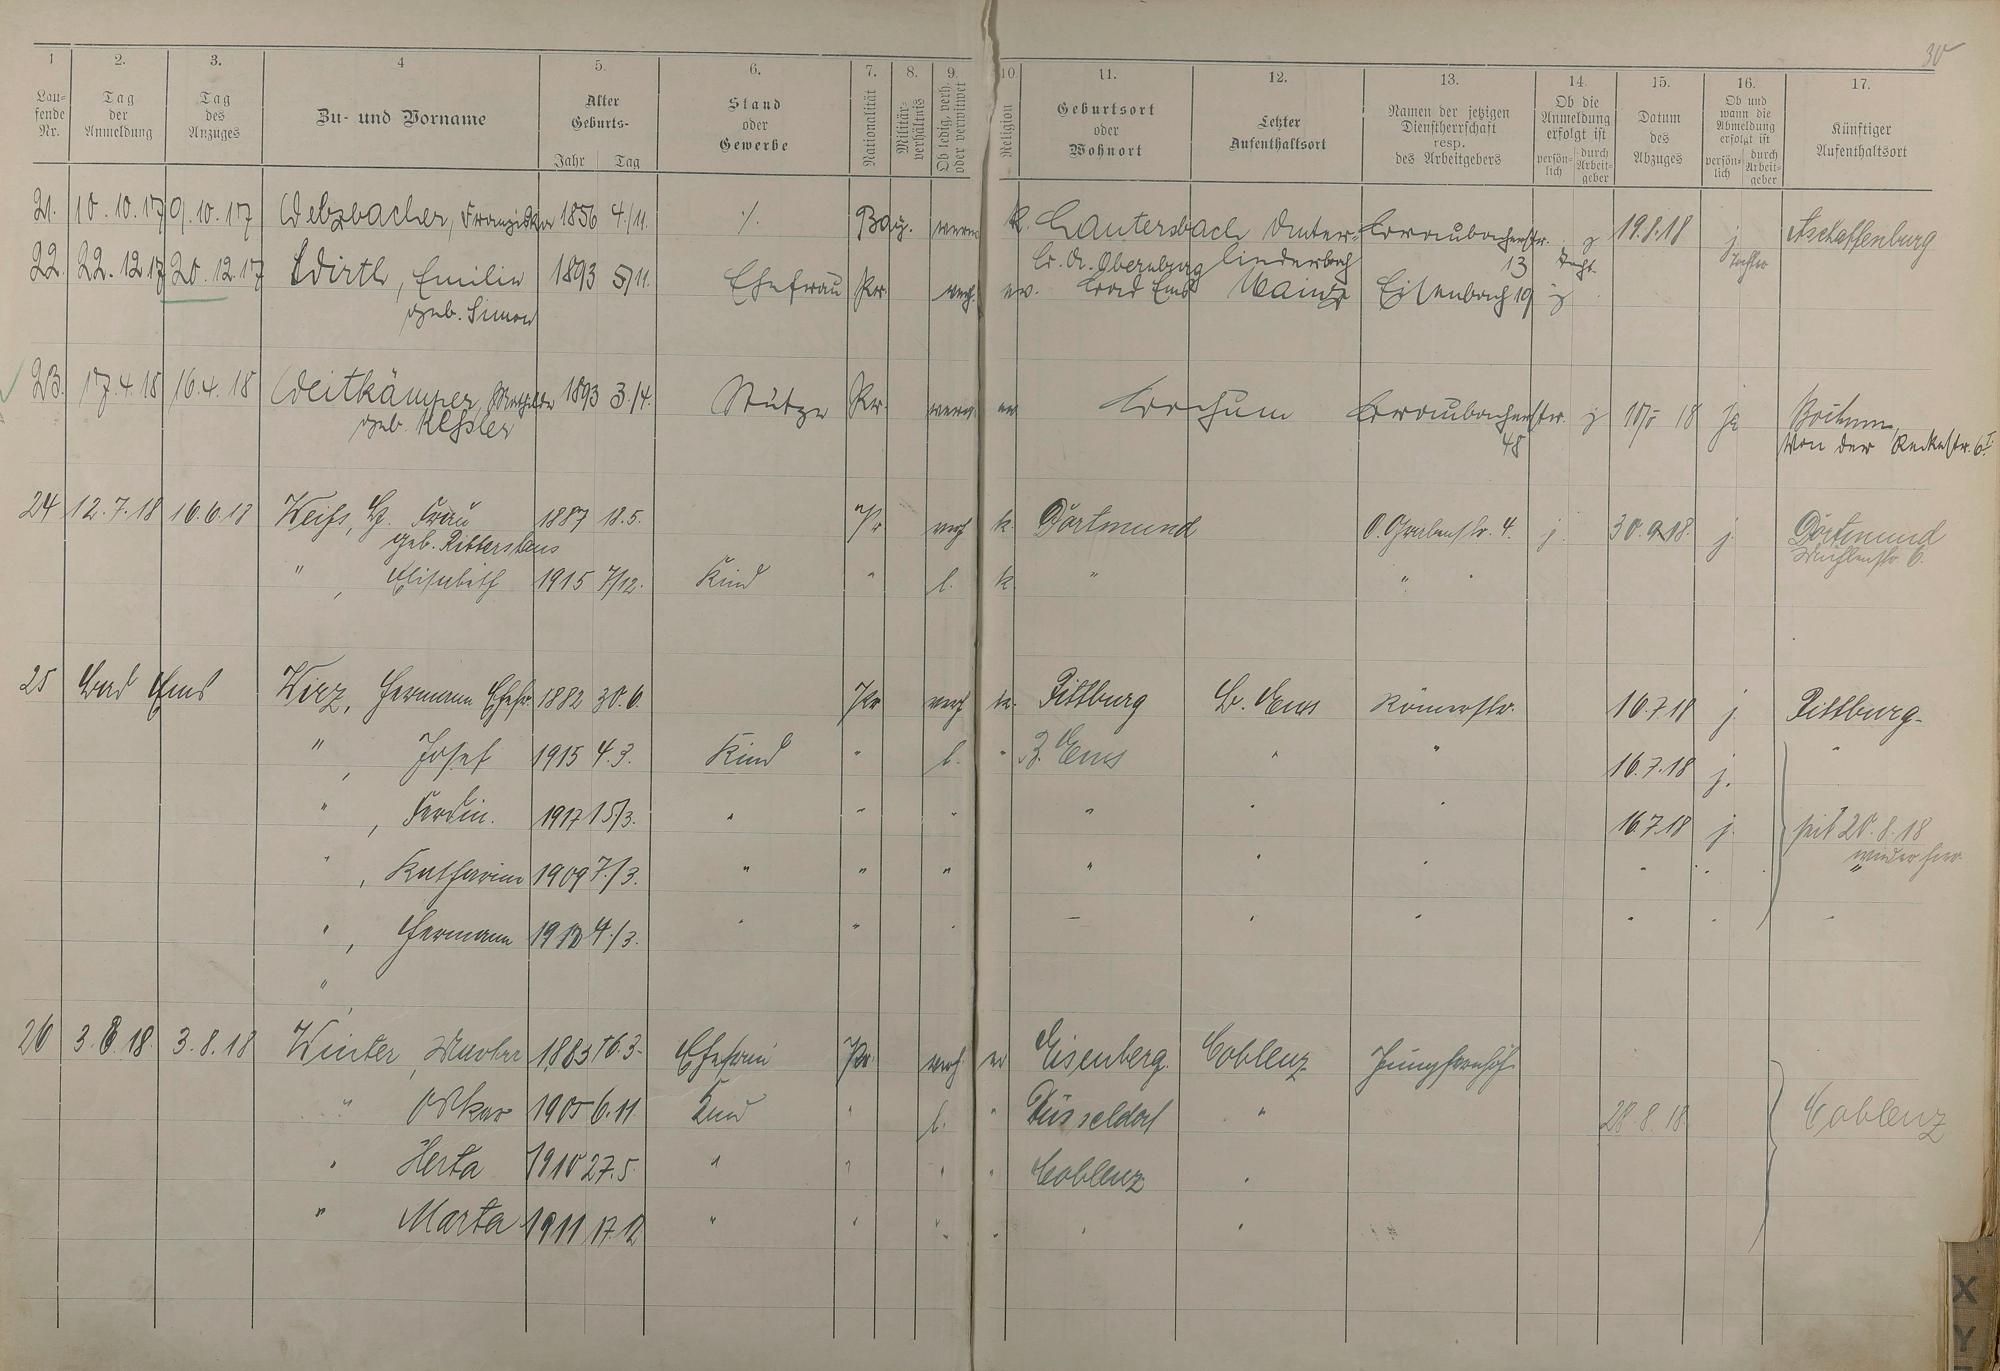 30
1 2. 3. 4 5. 6. 7. 8. 9. 10 11. 12. 13. 14. 15. 16. 17.
Lau-
fende
Nr.
Tag
der
Anmeldung
Tag
des
Anzuges
Zu- und Vorname
Alter
Geburts-
Jahr Tag
Stand
oder
Gewerbe
Nationalität
Militär-
verhältnis
Ob ledig, verh.
oder verwitwet
Religion
Geburtsort
oder
Wohnort
Letzter
Aufenthaltsort
Namen der jetzigen
Dienstherrschaft
resp.
des Arbeitgebers
Ob die
Anmeldung
erfolgt ist
persön-
lich
durch
Arbeit-
geber
Datum
des
Abzuges
Ob und
wann die
Abmeldung
erfolgt ist
persön-
lich
durch
Arbeit-
geber
Künftiger
Aufenthaltsort
21. 10.10.17 9.10.17 Welzbacher, Franziska 1856 4/11. ./. Bay. k. Lautersbach Unter- Braubacherstr. j 19.8.18 j Aschaffenburg
Kr. A. Obernburg liederbach 13 Tochter
22. 22.12.17 20.12.17 Wirth, Emilie 1893 5/11. Ehefrau Pr. verh. ev. Bad Ems Mainz Eisenbach 19 j
geb. Simon
23. 17.4.18 16.4.18 Weitkämper, Mathilde 1893 3/4. Stütze Pr. verw. ev. Bochum Braubacherstr. j 18 ja Bochum,
geb. Kessler 48 Von der Reckestr. 6 I.
24 12.7.18 16.6.18 Weiss, Frau 1887 18.5. Pr verh k. Dortmund O. Grabenstr. 4. j 30.9.18. j. Dortmund
geb. Rittershaus 6.
" , Elisabeth 1915 7/12. Kind " l. k. " " "
25 Bad Ems Wirz, Hermann Ehefr. 1882 30.6. Pr verh k. Pittburg B. Ems Römerstr. 16.7.18 j. Pittburg.
" , Josef 1915 4.3. Kind " l. " B. Ems " " 16.7.18 j. "
" , Ferdin. 1917 15/3. " " " " " " 16.7.18 j. seit 20.8.18
wieder hier
" , Katharina 1909 7./3. " " " " " " " " "
" , Hermann 1912 4./3. " " " — " " " " "
"
26 3.8.18. 3.8.18 Winter, 1883 16.3. Ehefrau Pr. verh ev Eisenberg. Coblenz Jungfernhöh
" Oskar 1905 6.11. Kind " l. " Düsseldorf " 28.8.18. Coblenz
" Herta 1910 27.5. " " " " Coblenz "
" Marta 1911 17.12 " " " " " "
X
Y